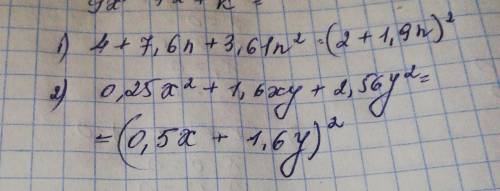 1) 4 + 7,6n + 3,61n² = (2 + 1,9n)²
2) 0,25x² + 1,6xy + 2,56y² =
= (0,5x + 1,6y)²